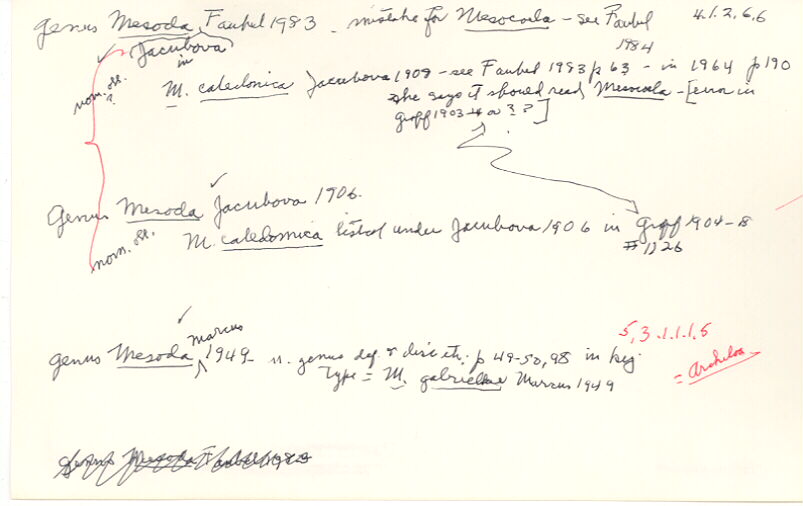 Genus Mesoda, Faubel 1983 - mistake for Mesocoela - see Faubel 1984 4.1.2.6.6
Jacubova
in
nom. obl. ?
M. caledonica Jacubova 1909 - see Faubel 1983 p 63 - in 1964 p 190
she says it should read Mesocoela - [error in
Graff 1903-4 or ? ?]
Genus Mesoda Jacubova 1906.
nom. obl.
M. caledonica listed under Jacubova 1906 in Graff 1904-8
# 1226
genus Mesoda Marcus 1949 - n. genus def. & disc. p 49-50, 98 in key.
5,3.1.1.1.5
= Archiloa
Type = M. gabriellae Marcus 1949
Genus Mesoda Faubel 1983